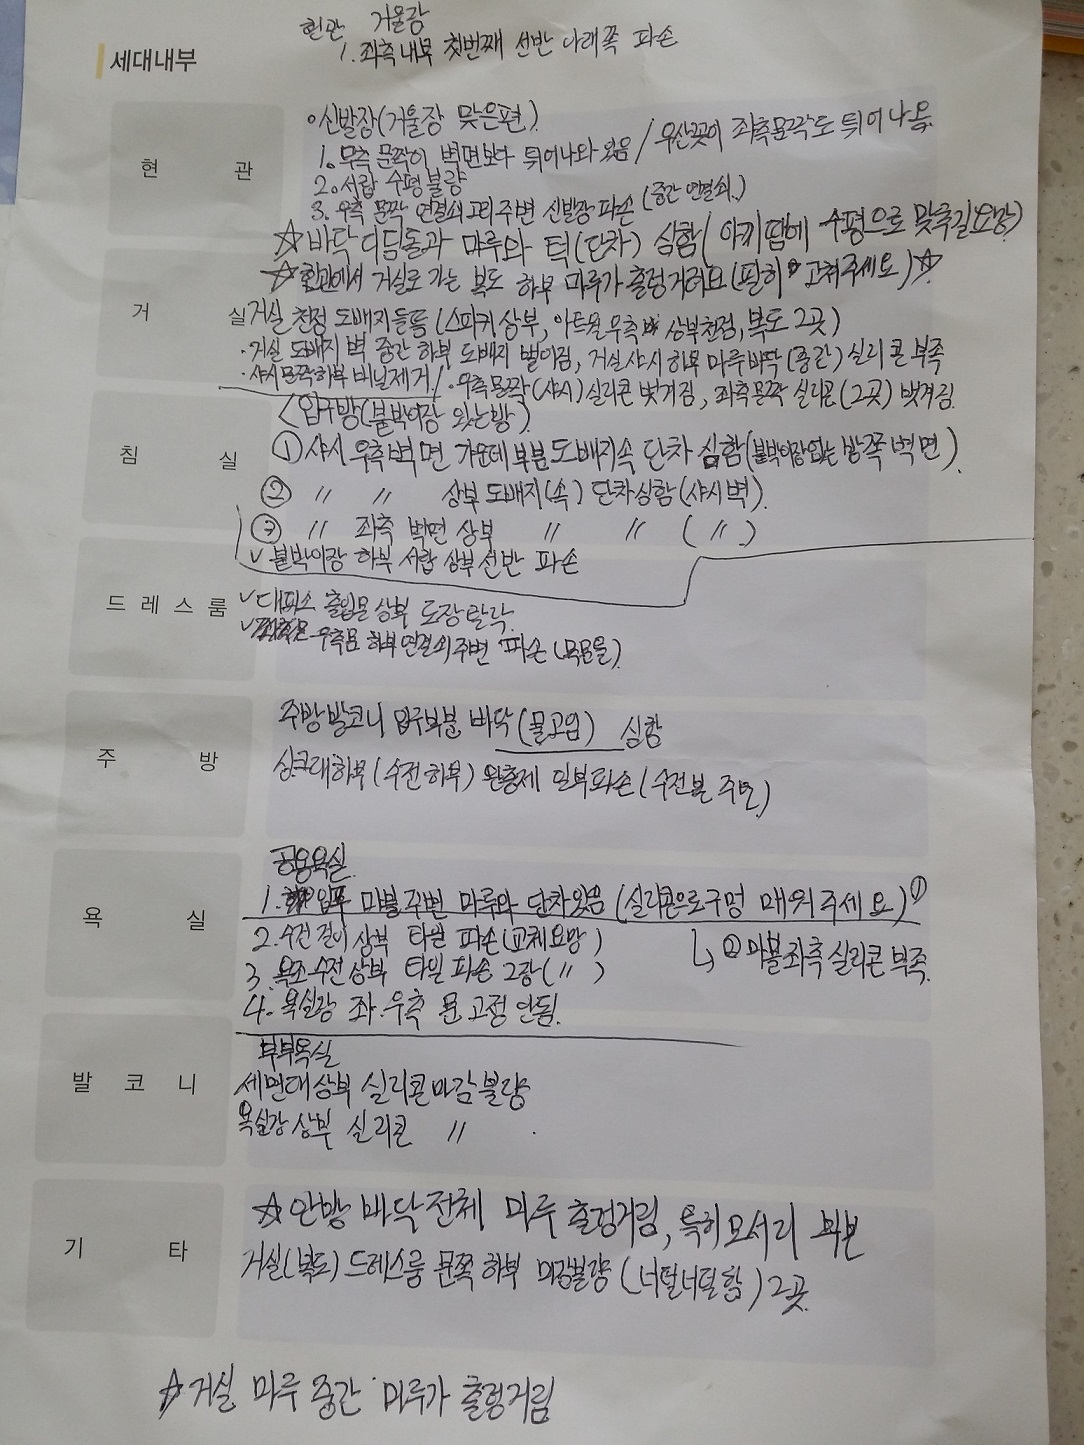 현관 거울장
1. 좌측내부 첫번째 선반 아래쪽 파손
세대내부
현관
◦신발장(거울장 맞은편)
1. 우측 문짝이 벽면보다 튀어나와있음 / 우산꽂이 좌측문짝도 튀어나옴
2. 서랍 수평불량
3. 우측 문짝 연결쇠고리 주변 신발장 파손 (중간 연결쇠.)
☆ 바닥 디딤돌과 마루와 턱(단차) 심함( 수평으로 맞추길요망)
☆ 현관에서 거실로 가는 복도 하부 마루가 출렁거려요(필히 고쳐주세요)☆
거실
거실 천정 도배지들뜸 (스피커 상부, 아트월 우측 상부천정, 복도 2곳)
·거실 도배지 벽 중간 하부 도배지 벌어짐, 거실샤시 하부 마루바닥(중간) 실리콘 부족
·샤시문짝하부 비닐제거 / ·우측문짝(샤시) 실리콘 벗겨짐, 좌측문짝 실리콘(2곳) 벗겨짐
침실
<입구방(붙박이장 있는방)
① 샤시 우측벽면 가운데 부분 도배지속 단차 심함(붙박이장 없는 방쪽 벽면)
② 〃 〃 상부 도배지(속) 단차심함(샤시벽).
③ 〃 좌측 벽면 상부 〃 〃 ( 〃 )
✓ 붙박이장 하부 서랍 상부선반 파손
드레스룸
✓ 대피소 출입문 상부 도장탈락
✓ 우측문 하부연결쇠주변 파손
주방
주방발코니 입구부분 바닥(물고임) 심함
싱크대하부(수전하부) 완충제 일부파손(수전 주변)
욕실
공용욕실
1. 입구 마블 주변 마루와 단차있음 (실리콘으로구멍 매워주세요)①
2. 수건 걸이상부 타일 파손(교체요망)
↳ ② 마블좌측 실리콘 부족.
3. 욕조수전상부 타일 파손 2장( 〃 )
4. 욕실장 좌·우측 문 고정 안됨.
발코니
부부욕실
세면대상부 실리콘마감불량
욕실장 상부 실리콘 〃
기타
☆ 안방 바닥전체 마루 출렁거림, 특히 모서리 부분
거실(복도) 드레스룸 문쪽 하부 마감불량 (너덜너덜함) 2곳
☆ 거실 마루 중간 마루가 출렁거림